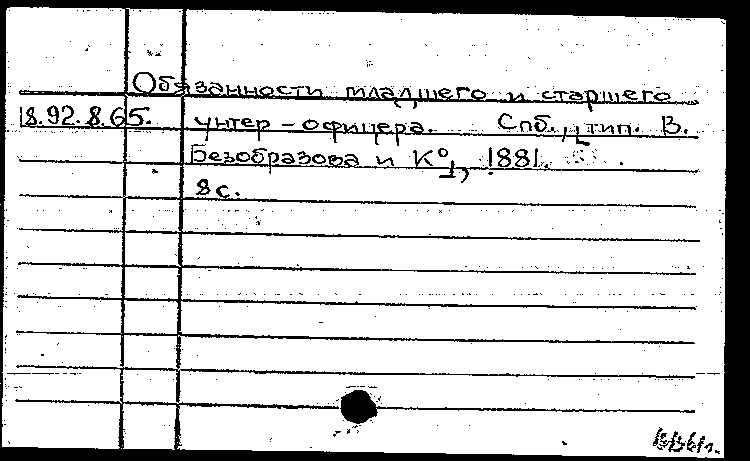 Обязанности младшего и старшего
18.92.8.65. унтер-офицера. Спб., тип. В.
Безобразова и К°, 1881.
8 с.